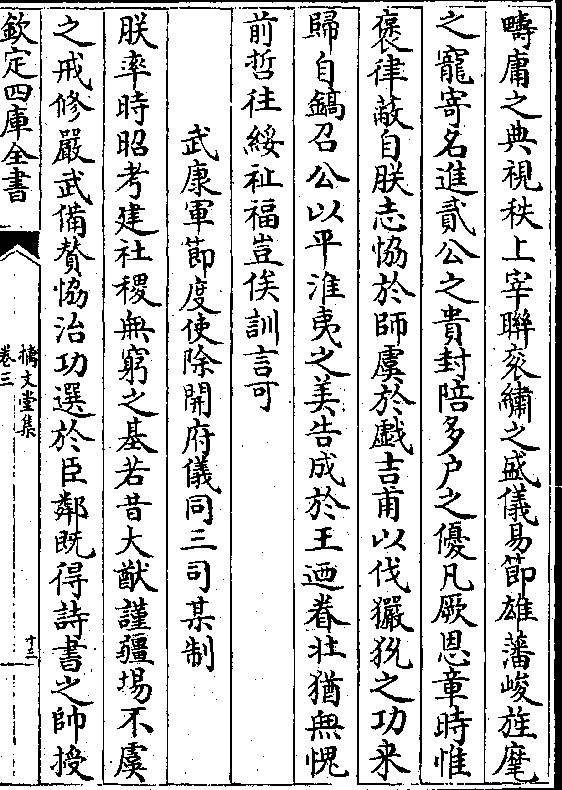 疇庸之典視秩上宰聨衮繡之盛儀易節雄藩峻旌麾
之寵寄名進貳公之貴封陪多户之優凡厥恩章時惟
褒律敵自朕志恊於師虞於戯吉甫以伐玁狁之功来
歸自鎬召公以平淮夷之美告成於王迺眷壯猶無愧
前哲徃綏祉福豈俟訓言可
武康軍節度使除開府儀同三司某制
朕率時昭考建社稷無窮之基若昔大猷謹疆埸不虞
之戒修嚴武備賛恊治功選於臣鄰既得詩書之帥授
欽定四庫全書
摛文堂集
卷三
十三